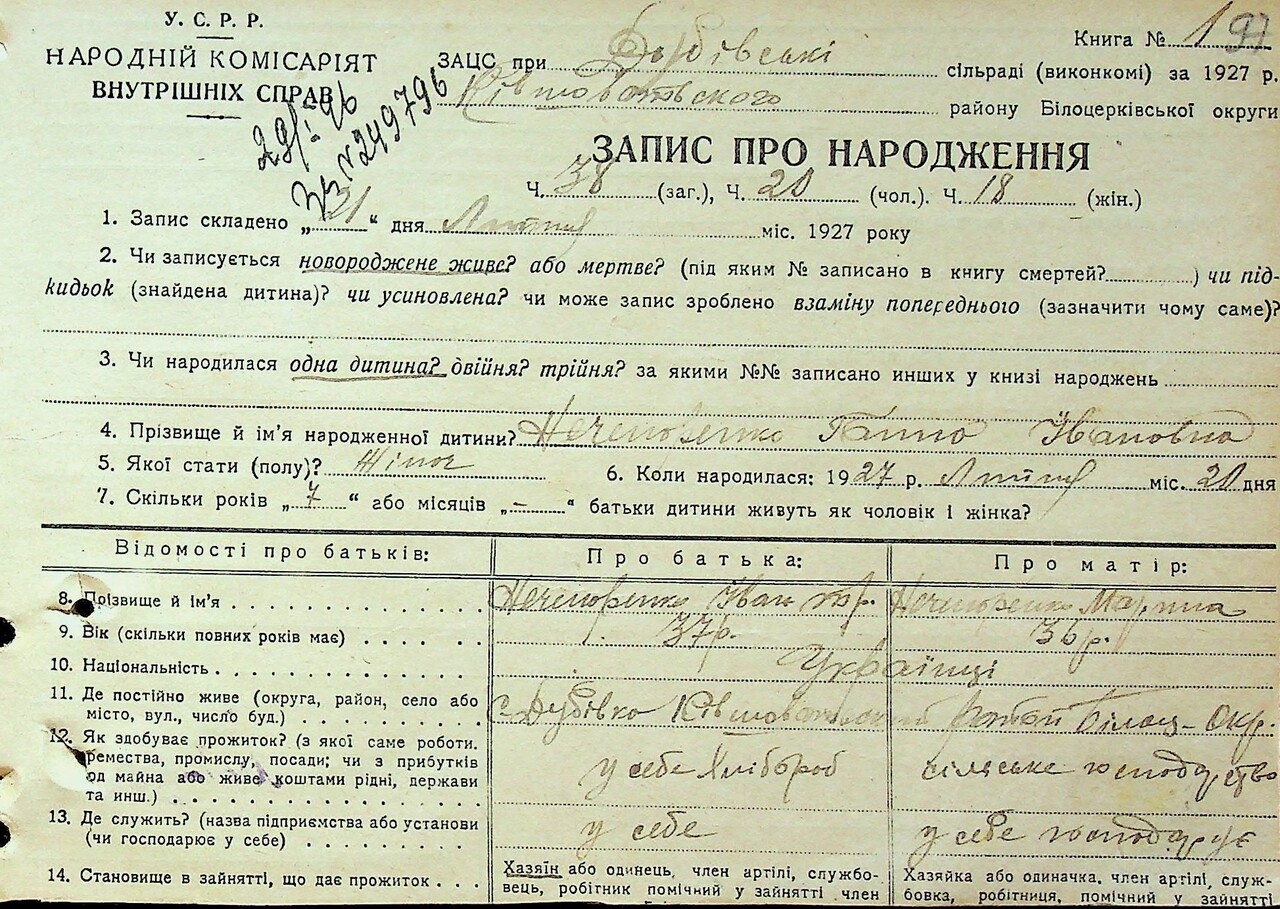 У. С. Р. Р.
НАРОДНІЙ КОМІСАРІЯТ
ВНУТРІШНІХ СПРАВ
Книга № 1
ЗАЦС при Дубівські сільраді (виконкомі) за 1927 р.
Ківшоватського району Білоцерківської округи
29/I 96
249796
ЗАПИС ПРО НАРОДЖЕННЯ
Ч. 38 (заг.), Ч. 20 (чол.). Ч. 18 (жін.)
1. Запис складено „21“ дня Лютня міс. 1927 року
2. Чи записується новороджене живе? або мертве? (під яким № записано в книгу смертей?) чи під-
кидьок (знайдена дитина)? чи усиновлена? чи може запис зроблено взаміну попереднього (зазначити чому саме)?
3. Чи народилася одна дитина? двійня? трійня? за якими №№ записано инших у книзі народжень
4. Прізвище й ім'я народженної дитини? Нечипоренко Ганна Івановна
5. Якої стати (полу)? Жіноч 6. Коли народилася: 1927 р. Лютня міс. 20 дня
7. Скільки років „7“ або місяців „–“ батьки дитини живуть як чоловік і жінка?
Відомості про батьків: Про батька: Про матір:
8. Прізвище й ім'я Нечипоренко Іван Нечипоренко Марина
9. Вік (скільки повних років має) 37р. 36р.
10. Національність Українці
11. Де постійно живе (округа, район, село або
місто, вул., число буд.) с. Дубівка Ківшоватський район Білоц-Окр.
12. Як здобуває прожиток? (з якої саме роботи.
ремества, промислу, посади; чи з прибутків
од майна або живе коштами рідні, держави
та инш.) у себе Хлібороб сільське господарство
13. Де служить? (назва підприємства або установи
(чи господарює у себе) у себе у себе господарує
14. Становище в зайнятті, що дає прожиток
Хазяїн або одинець, член артілі, службо-
вець, робітник помічний у зайнятті член
Хазяйка або одиначка, член артілі, служ-
бовка, робітниця, помічний у зайнятті